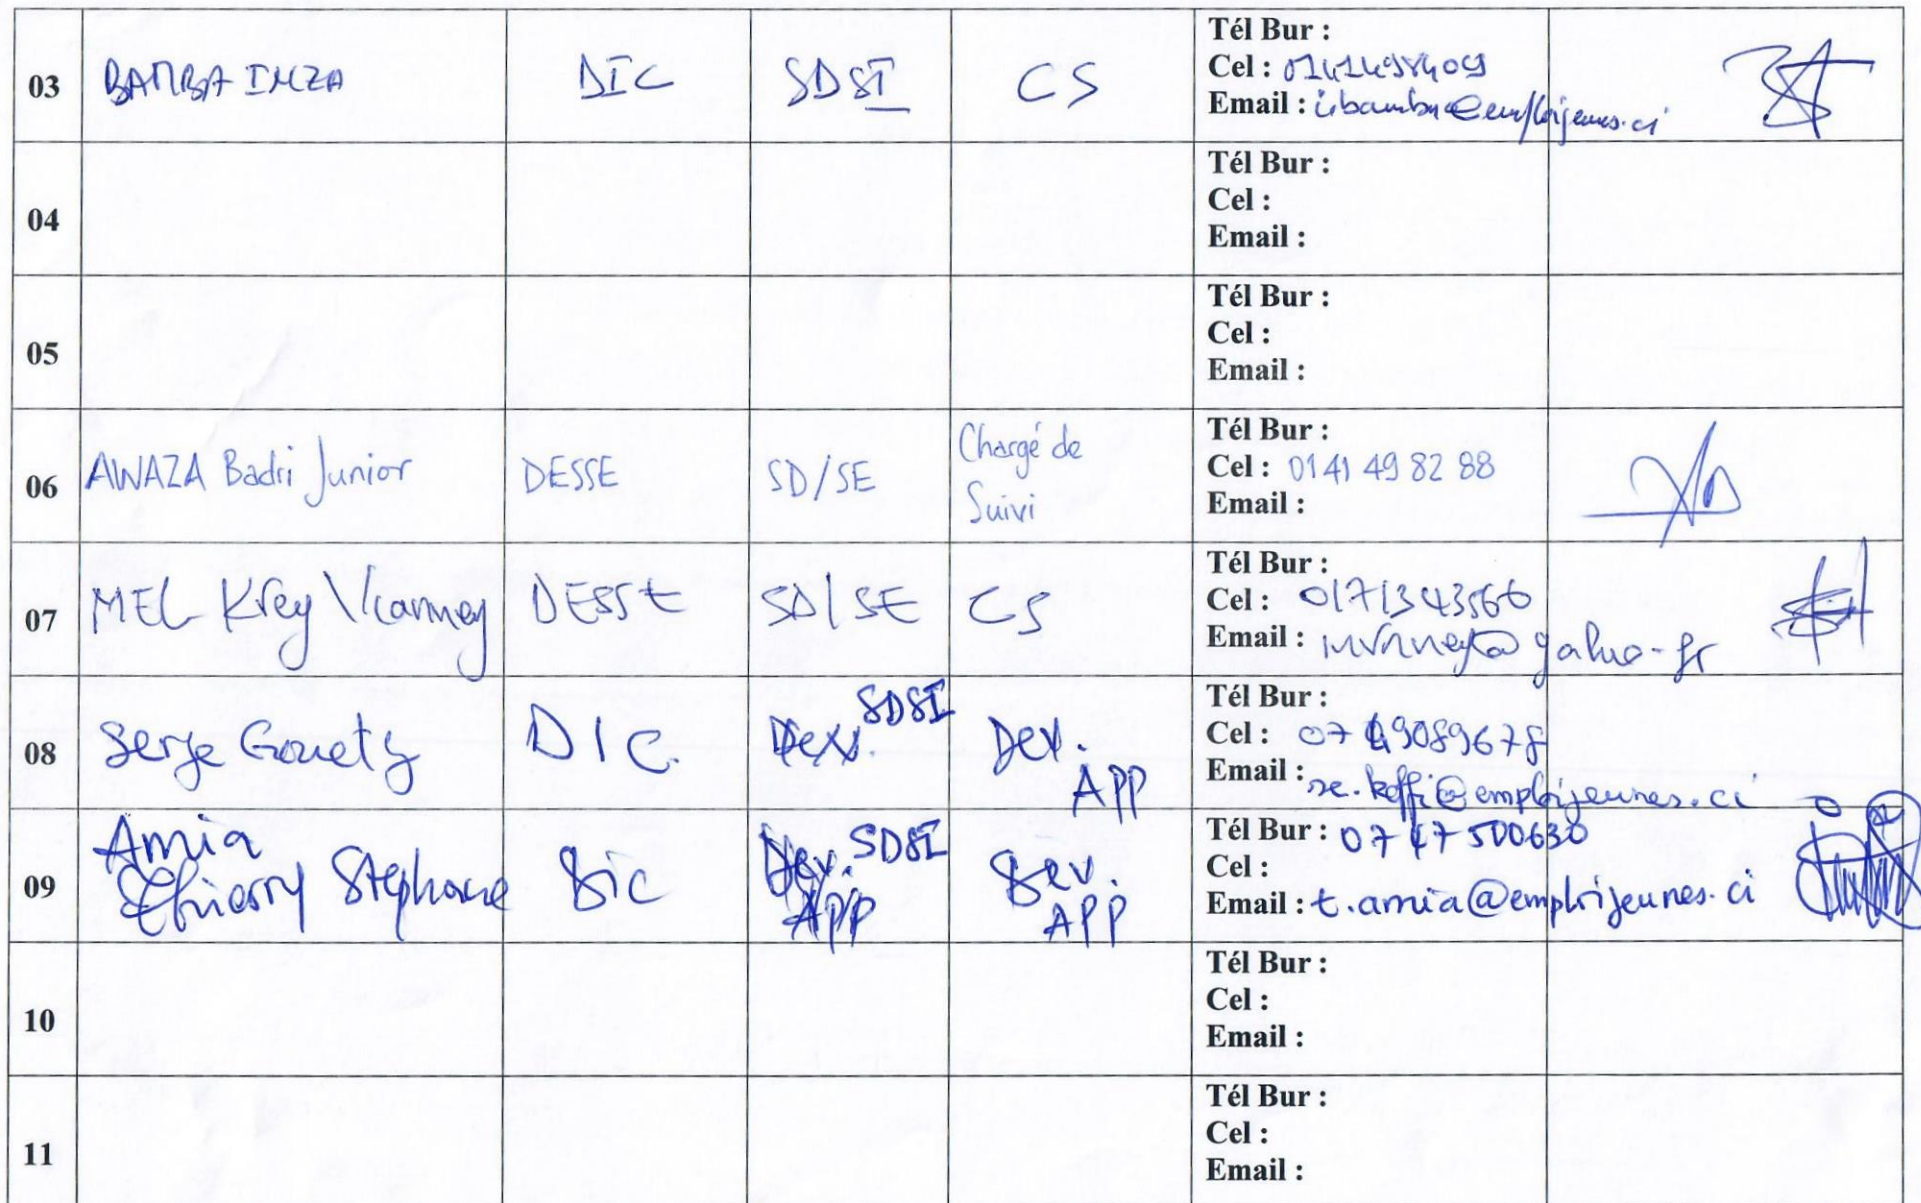 03 BAMBA INZA DIC SDSI CS
Tél Bur :
Cel : 0141498409
Email : i.bamba@emploijeunes.ci
04
Tél Bur :
Cel :
Email :
05
Tél Bur :
Cel :
Email :
06 AWAZA Badri Junior DESSE SD/SE Chargé de
Suivi
Tél Bur :
Cel : 01 41 49 82 88
Email :
07 MEL Krey DESSE SD/SE CS
Tél Bur :
Cel : 0171343566
Email :
08 Serge DIC. SDSI Dev.
APP
Tél Bur :
Cel : 07 49089678
Email : se.koffi@emploijeunes.ci
09 Amia
Thierry Stephane DIC SDSI Dev.
APP
Tél Bur : 07 47 500630
Cel :
Email : t.amia@emploijeunes.ci
10
Tél Bur :
Cel :
Email :
11
Tél Bur :
Cel :
Email :